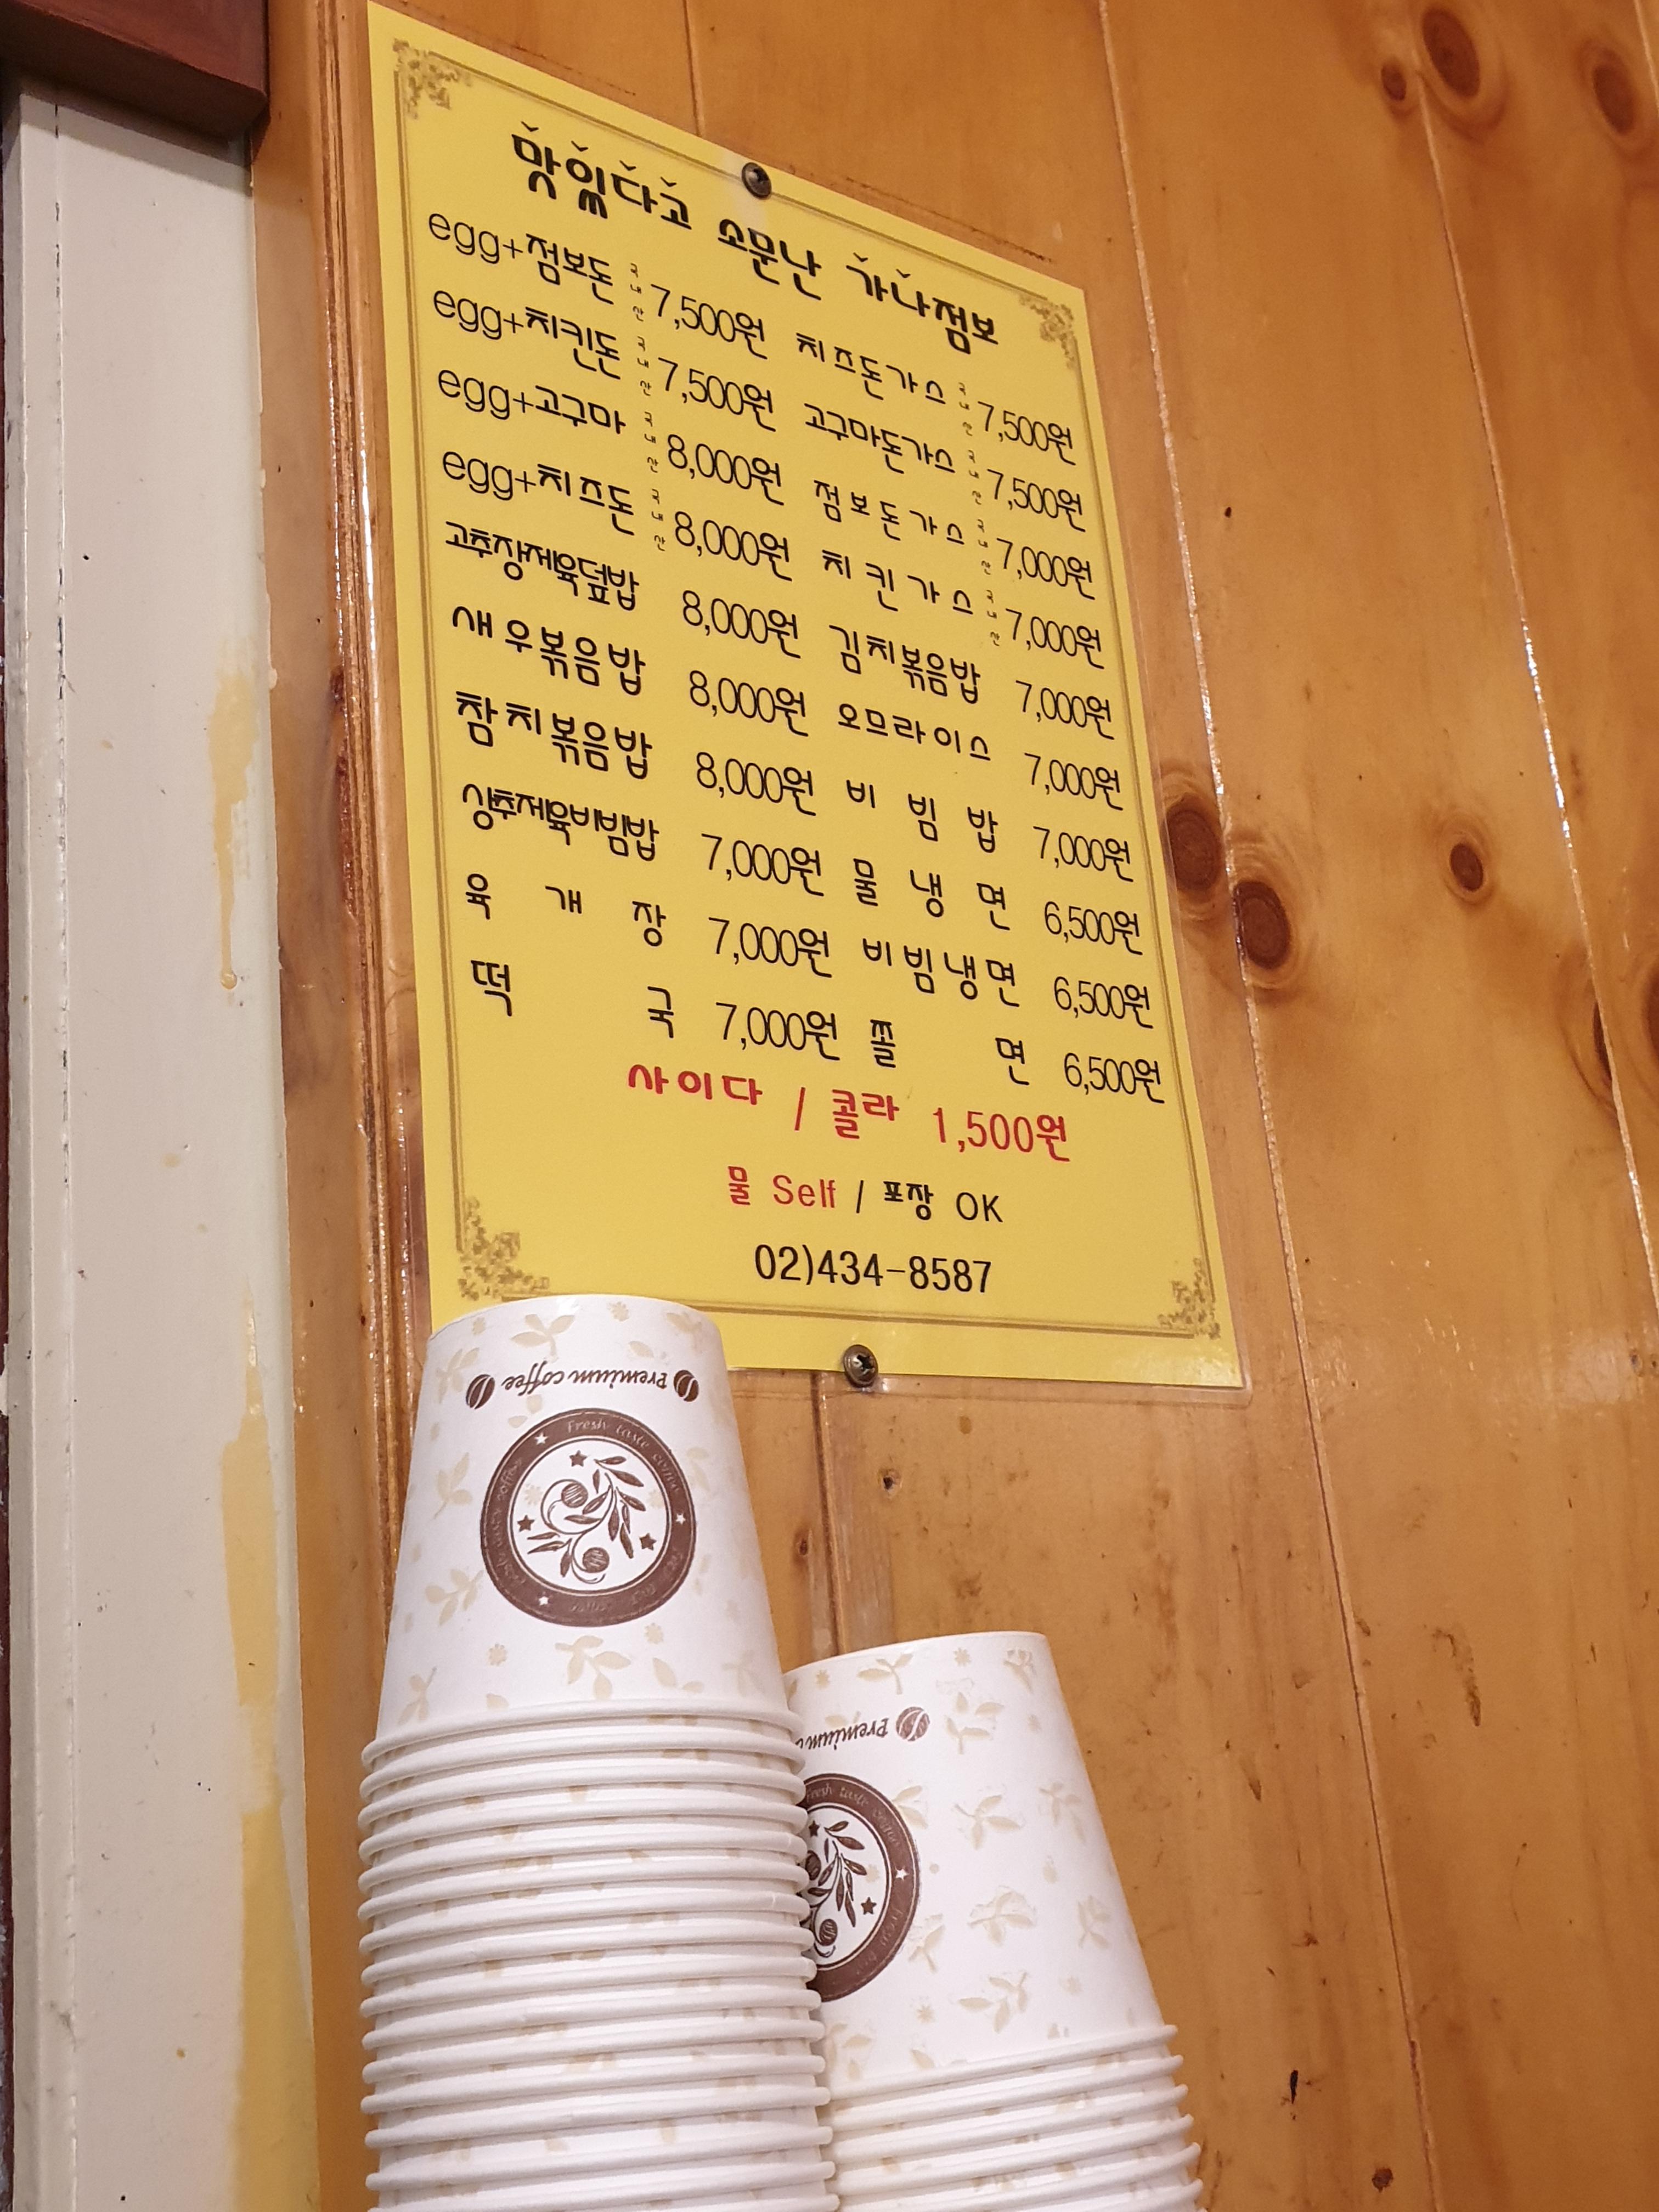 맛있다고 소문난 가나점보
egg+점보돈 국내산 7,500원 치즈돈가스 국내산 7,500원
egg+치킨돈 국내산 7,500원 고구마돈가스 국내산 7,500원
egg+고구마 국내산 8,000원 점보돈가스 국내산 7,000원
egg+치즈돈 국내산 8,000원 치킨가스 국내산 7,000원
고추장제육덮밥 8,000원 김치볶음밥 7,000원
새우볶음밥 8,000원 오므라이스 7,000원
참치볶음밥 8,000원 비빔밥 7,000원
상추제육비빔밥 7,000원 물냉면 6,500원
육개장 7,000원 비빔냉면 6,500원
떡국 7,000원 쫄면 6,500원
사이다 / 콜라 1,500원
물 Self / 포장 OK
02)434-8587
Premium coffee
Fresh taste coffee
Premium
Fresh taste